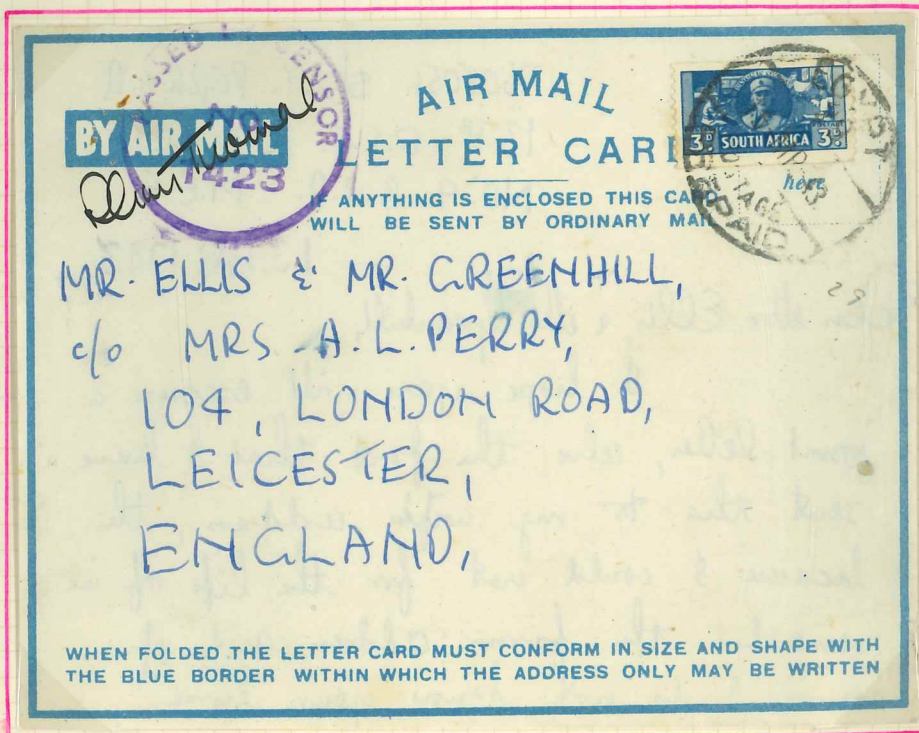 PASSED BY CENSOR
No.
1423
BY AIR MAIL
AIR MAIL
LETTER CARD
IF ANYTHING IS ENCLOSED THIS CARD
WILL BE SENT BY ORDINARY MAIL
3D SOUTH AFRICA 3D
here
EGYPT
POSTAGE
PREPAID
29
MR. ELLIS & MR. GREENHILL,
c/o MRS. A. L. PERRY,
104, LONDON ROAD,
LEICESTER,
ENGLAND,
WHEN FOLDED THE LETTER CARD MUST CONFORM IN SIZE AND SHAPE WITH
THE BLUE BORDER WITHIN WHICH THE ADDRESS ONLY MAY BE WRITTEN